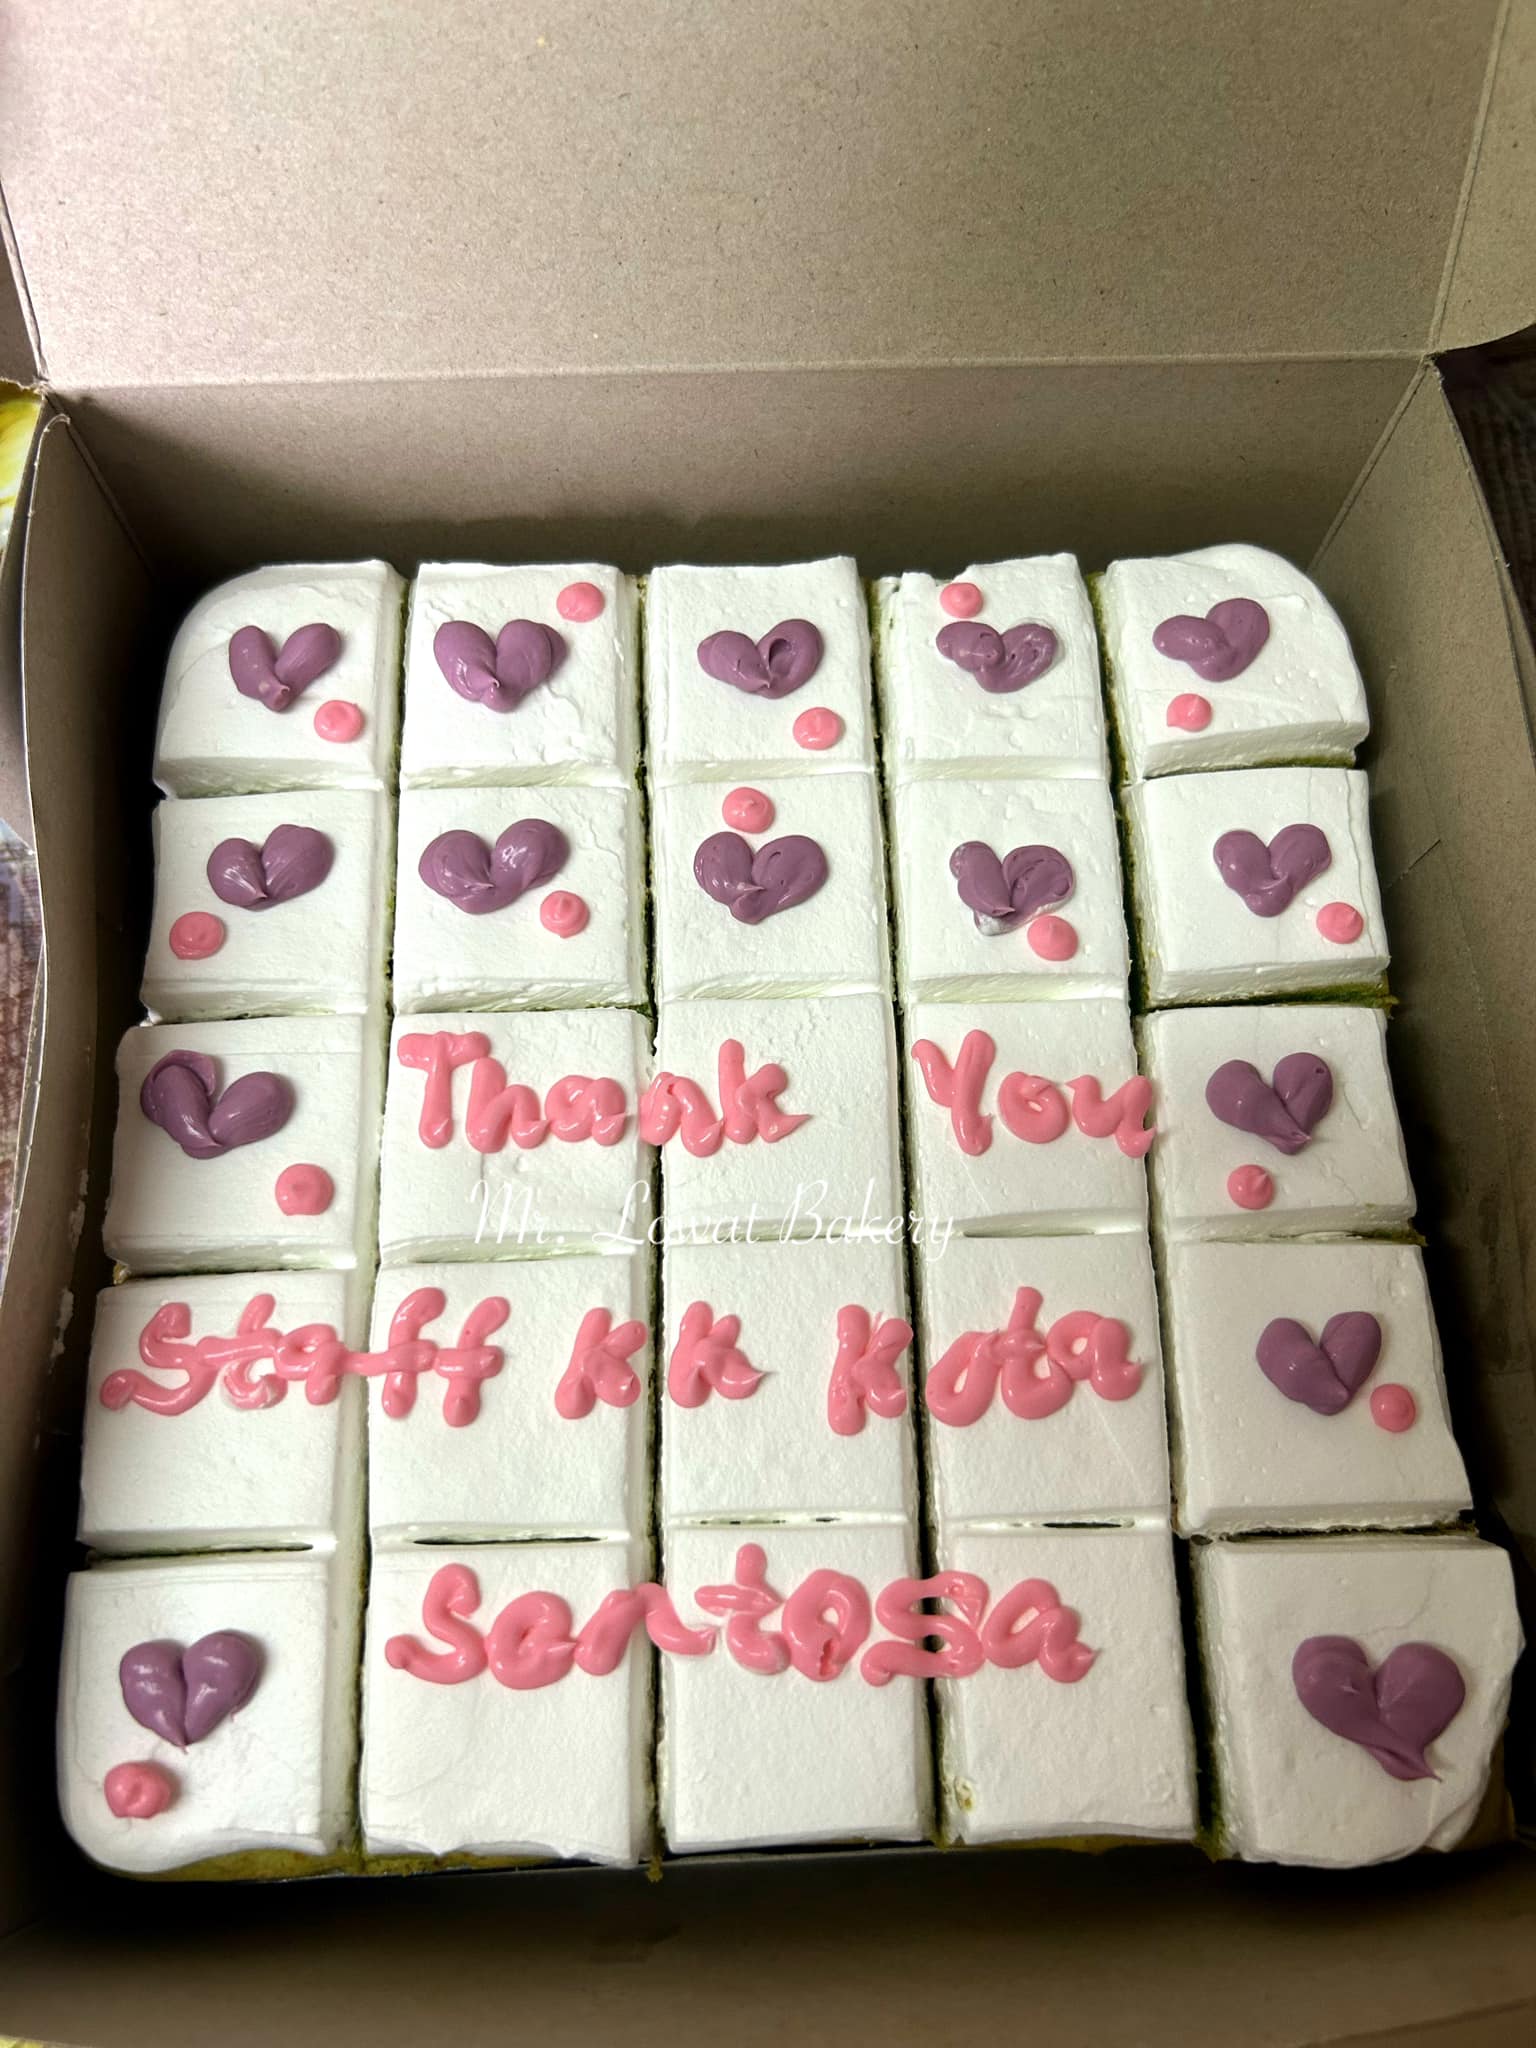 Thank You
Mr. Lowat Bakery
Staff KK Kota
Sentosa